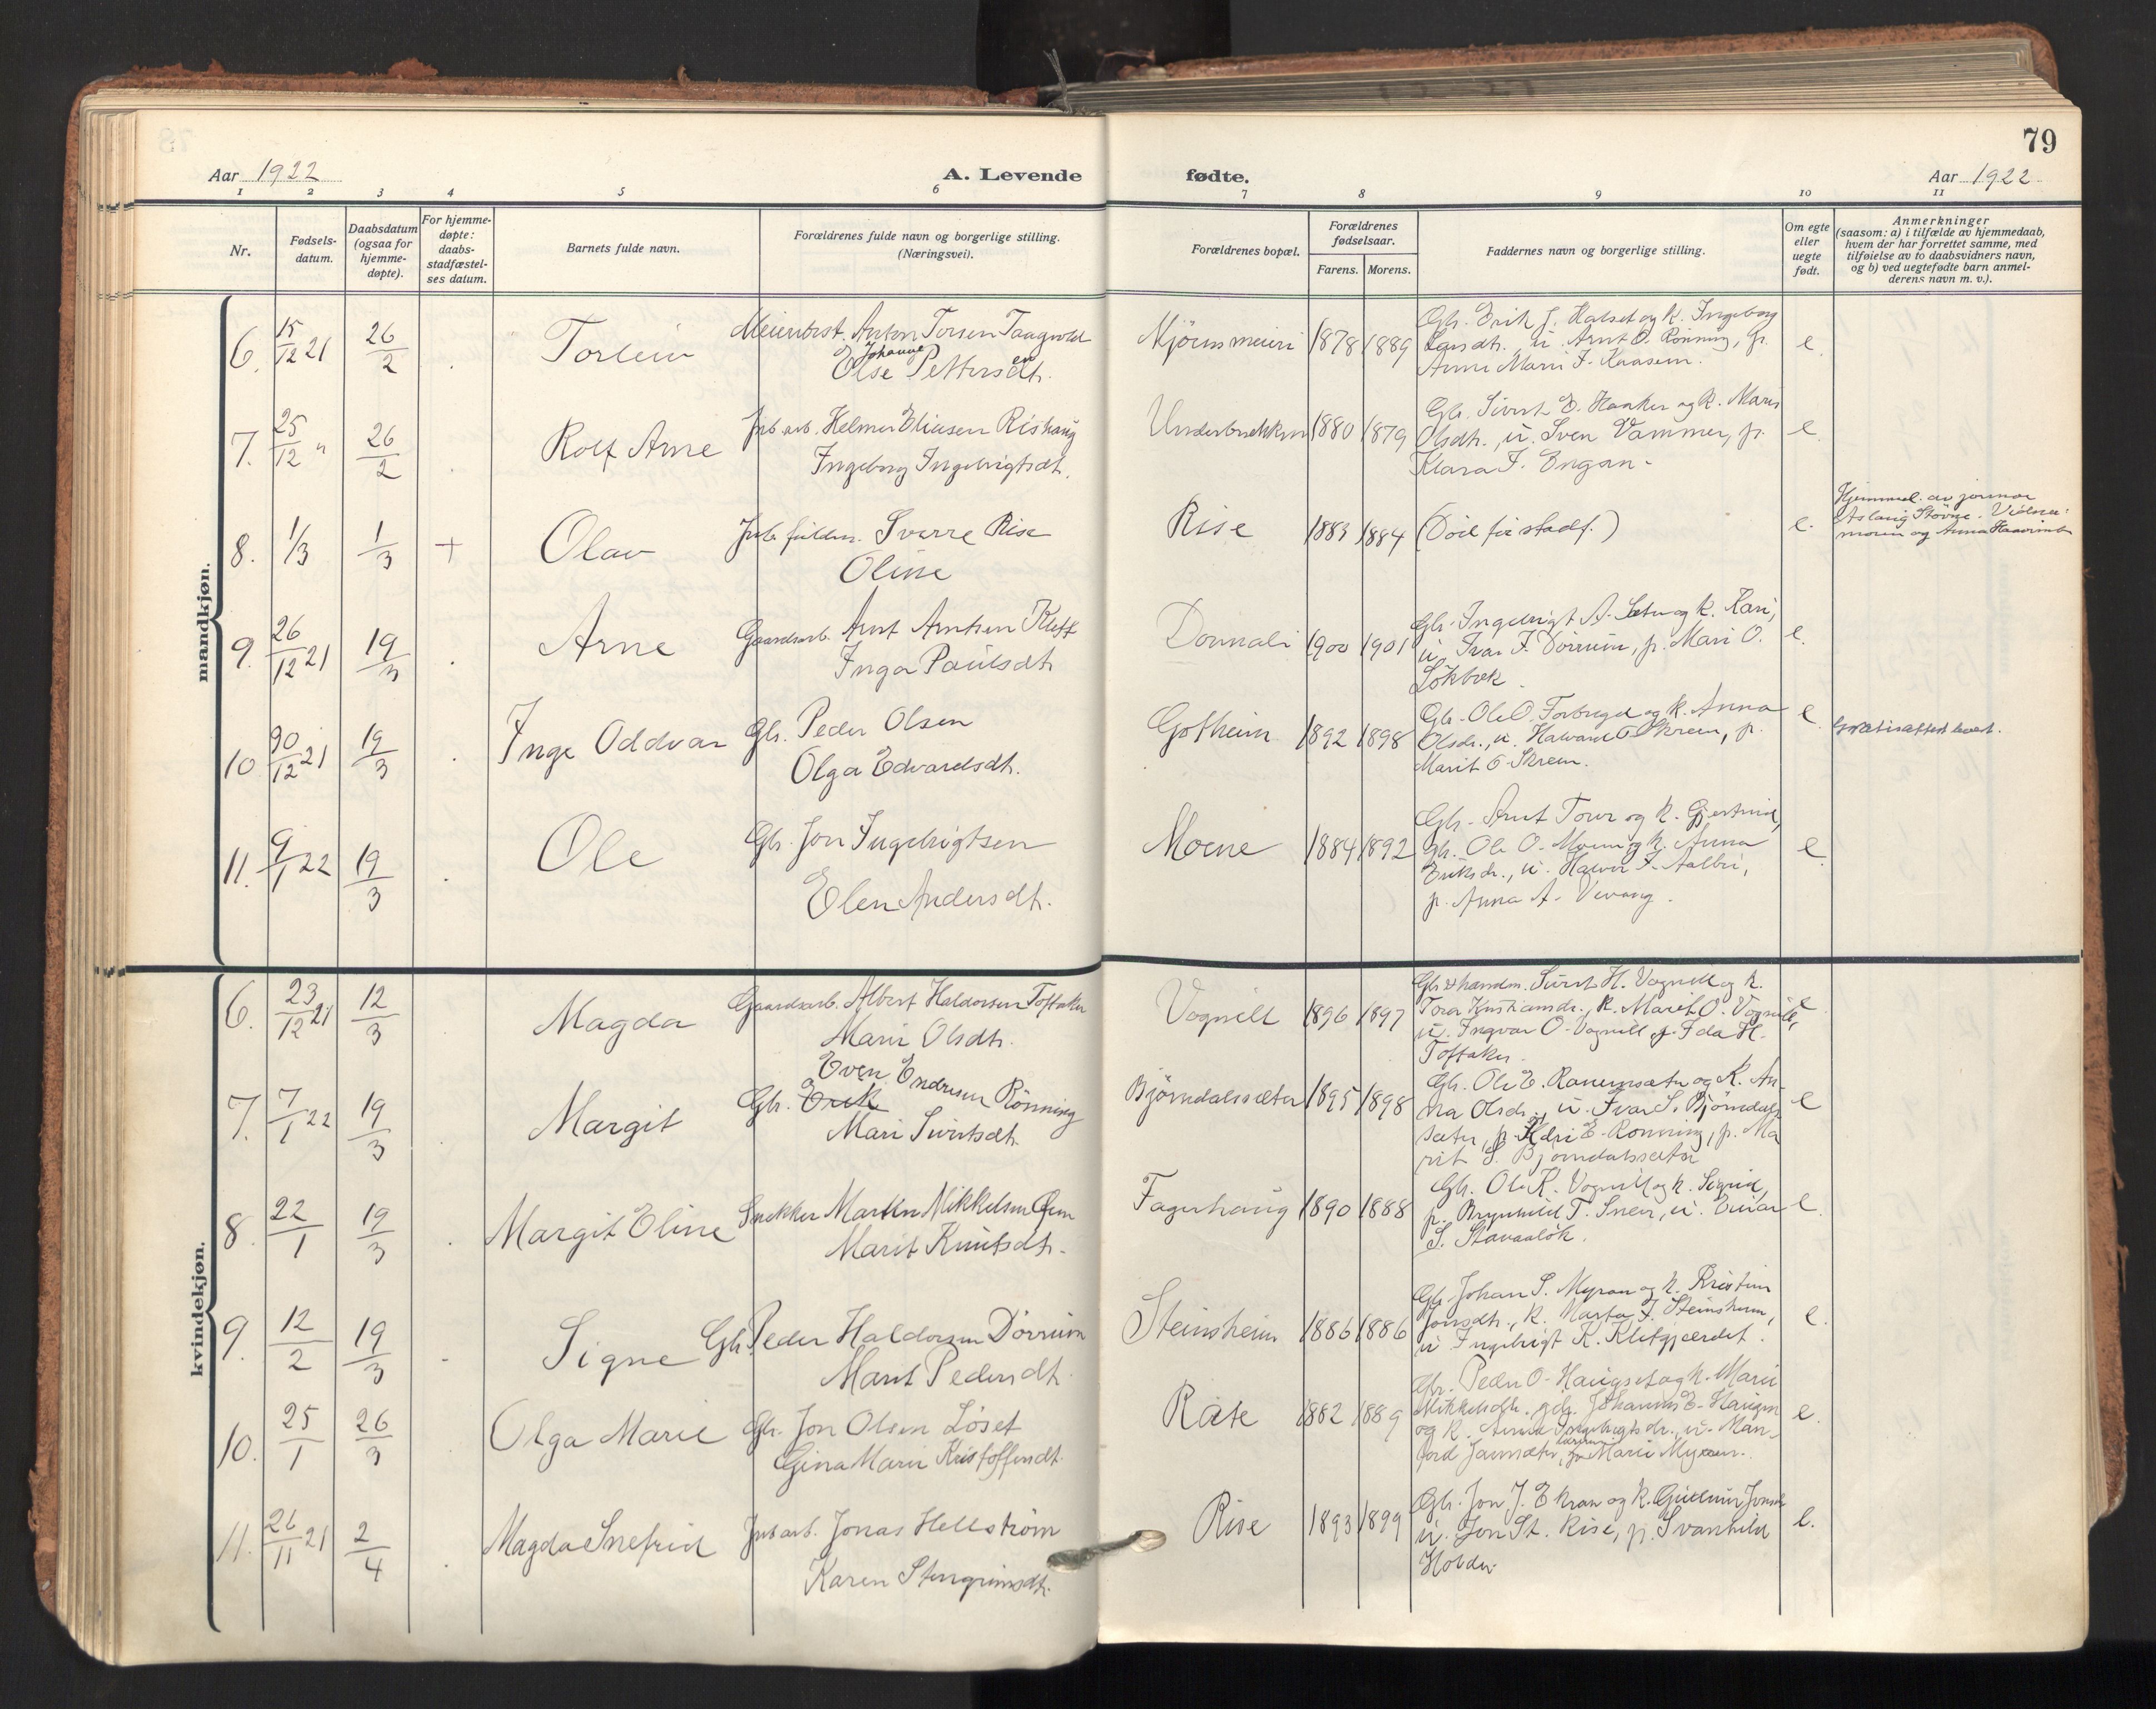 79
Aar 1922
A. Levende
fødte.
Aar 1922
1 2 3 4 5 6 7 8 9 10 11
Nr.
Fødsels-
datum.
Daabsdatum
(ogsaa for
hjemme-
døpte).
For hjemme-
døpte:
daabs-
stadfæstel-
ses datum.
Barnets fulde navn.
Forældrenes fulde navn og borgerlige stilling.
(Næringsvei).
Forældrenes bopæl.
Forældrenes
fødselsaar.
Farens. Morens.
Faddernes navn og borgerlige stilling.
Om egte
eller
uegte
født.
Anmerkninger
(saasom: a) i tilfælde av hjemmedaab,
hvem der har forrettet samme, med
tilføielse av to daabsvidners navn,
og b) ved uegtefødte barn anmel-
derens navn m. v.).
mandkjøn.
6. 15/12 21 26/2 . Torleiv
Meieribest. Anton Torsen Taagvold
Johanne
Else Pettersdt.
Mjöens meieri 1878 1889
Gbr. Erik J. Halset og k. Ingeborg
Larsdt., u. Arnt O. Rönning, p.
Anne Marie F. Kaasen.
e.
7. 25/12 " 26/2 . Rolf Arne
Jnb. arb. Helmer Eliasen Rishaug
Ingeborg Ingebrigtsdt.
Underbrekken 1880 1879
Gbr. Sivert E. Haaker og k. Marit
Olsdt., u. Sven Vammer, p.
Klara F. Engan.
e.
8. 1/3 1/3 + Olav
Jnb. fuldm. Sverre Rise
Oline
Rise 1883 1884
(Död för stadf.)
e.
Hjemmed. av jormor
Aslaug Stövne. Vidner:
moren og Anna
9. 26/12 21 19/3 . Arne
Gaardsarb. Arnt Arntsen Kleft
Inga Paulsdt.
Donnali 1900 1901
Gbr. Ingebrigt A. Sæter og k. Kari,
u. Ivar F. Dörrum, p. Mari O.
Lökbæk.
e.
10 90/12 21 19/3 . Inge Oddvar
Gbr. Peder Olsen
Olga Edvardsdt.
Gotheim 1892 1898
Gbr. Ole O. Forbregd og k. Anna
Olsdr., u. Halvard O. Skrem, p.
Marit O. Skrem.
e.
Gratisattest levert.
11. 9/1 22 19/3 . Ole
Gbr. Jon Ingebrigtsen
Elen Andersdt.
Moene 1884 1892
Gbr. Arnt Tour og k. Gjertrud,
Gbr. Ole O. Moen og k. Anna
Eriksdr., u. Halvor F. Aalbu,
p. Anna A. Vevang.
e.
kvindekjøn.
6. 23/12 21 12/3 Magda
Gaardsarb. Albert Haldorsen Toftaker
Mari Olsdt.
Vognill 1896 1897
Gbr. & handm. Sivert H. Vognill og k.
Tora Kristiansdr., k. Marit O. Vognill,
u. Ingvar O. Vognill, p. Ida H.
Toftaker.
e
7. 7/1 22 19/3 . Margit
Even Endresen Rönning
Gbr. Erik
Mari Sivertsdt.
Björndalssæter 1895 1898
Gbr. Ole E. Ranemsæter og K. An-
na Olsdr., u. Ivar S. Björndals
sæter, p. Kari E. Rönning, p. Ma
rit S. Björndalssæter
e
8. 22/1 19/3 . Margit Eline
Snekker Martin Mikkelsen
Marit Knutsdt.
Fagerhaug 1890 1888
Gbr. Ole K. Vognill og k. Sigrid,
p. Brynhild T. Snever, u. Einar
S. Stavaalök.
e.
9. 12/2 19/3 - Signe
Gbr. Peder Haldorsen Dörrum
Marit Pedersdt.
Steinsheim 1886 1886
Gbr. Johan S. Myran og k. Kristin
Jonsdt., k. Marta J. Steinsheim,
u Ingebrigt K. Klefgjærdet.
e.
10. 25/1 26/3 Olga Marie
Gbr. Jon Olsen Löset
Gina Marie Kristoffersdt.
Rate 1882 1889
Gbr. Peder O. Haugset og k. Mari
Mikkelsdt., gdr. Johannes E. Haugen
og k. Anne Ingebrigtsdr., u. Man-
ford Jamsæter, Marie Myren.
e.
11. 26/11 21 2/4 . Magda Snefrid
Jnb. arb. Jonas Hellström
Karen Stengrimsdt.
Rise 1893 1899
Gbr. Jon J. Ekran og k. Gunnur Jonsdt
u. Jon St. Rise, p. Svanhild
Holder.
e.